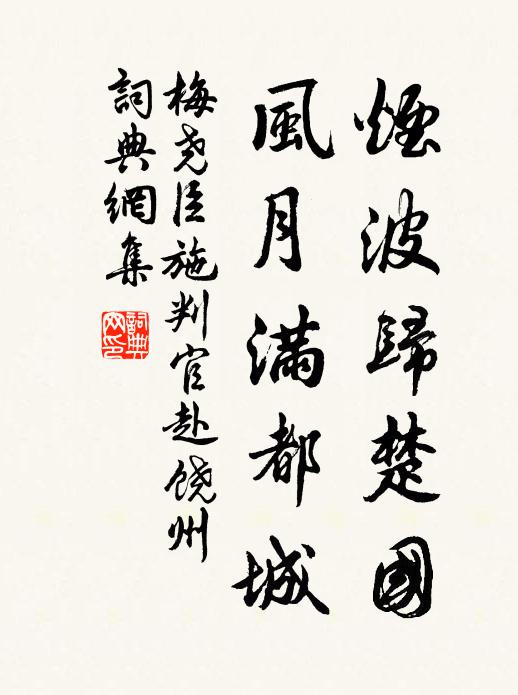 煙波歸楚國
風月滿都城
梅尧臣施判官赴饶州
詞典網集
詞典网印